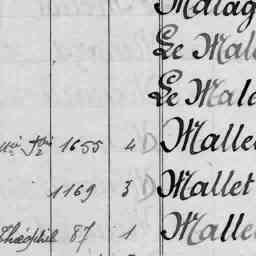 Malag
Le Mal
Le Male
1655 4 D Mallet
1169 3 D Mallet
Théophile 87 1 Malle